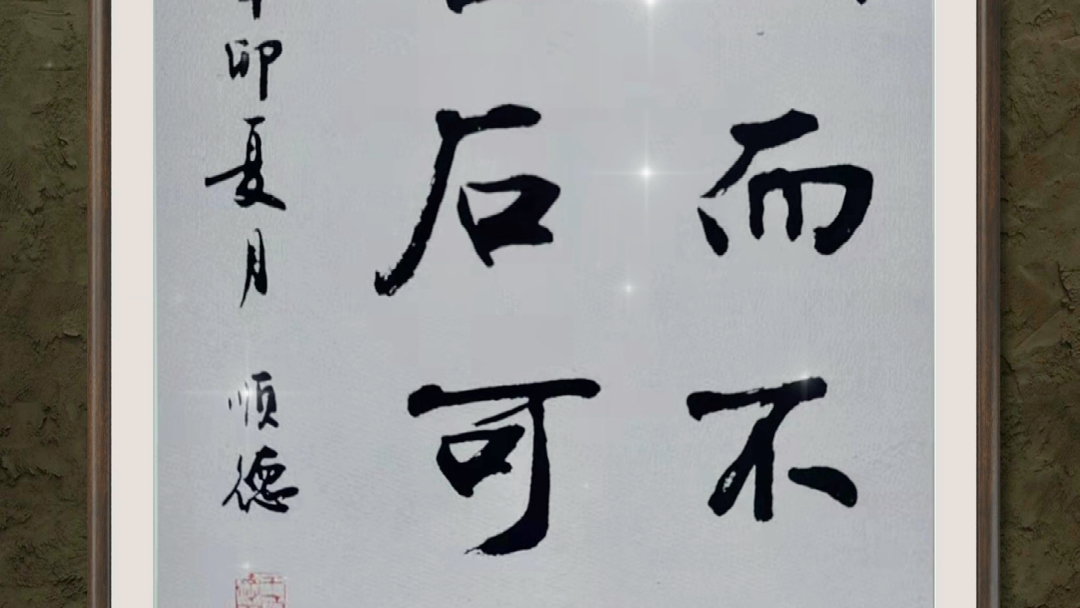 而不
后可
卯夏月 顺德